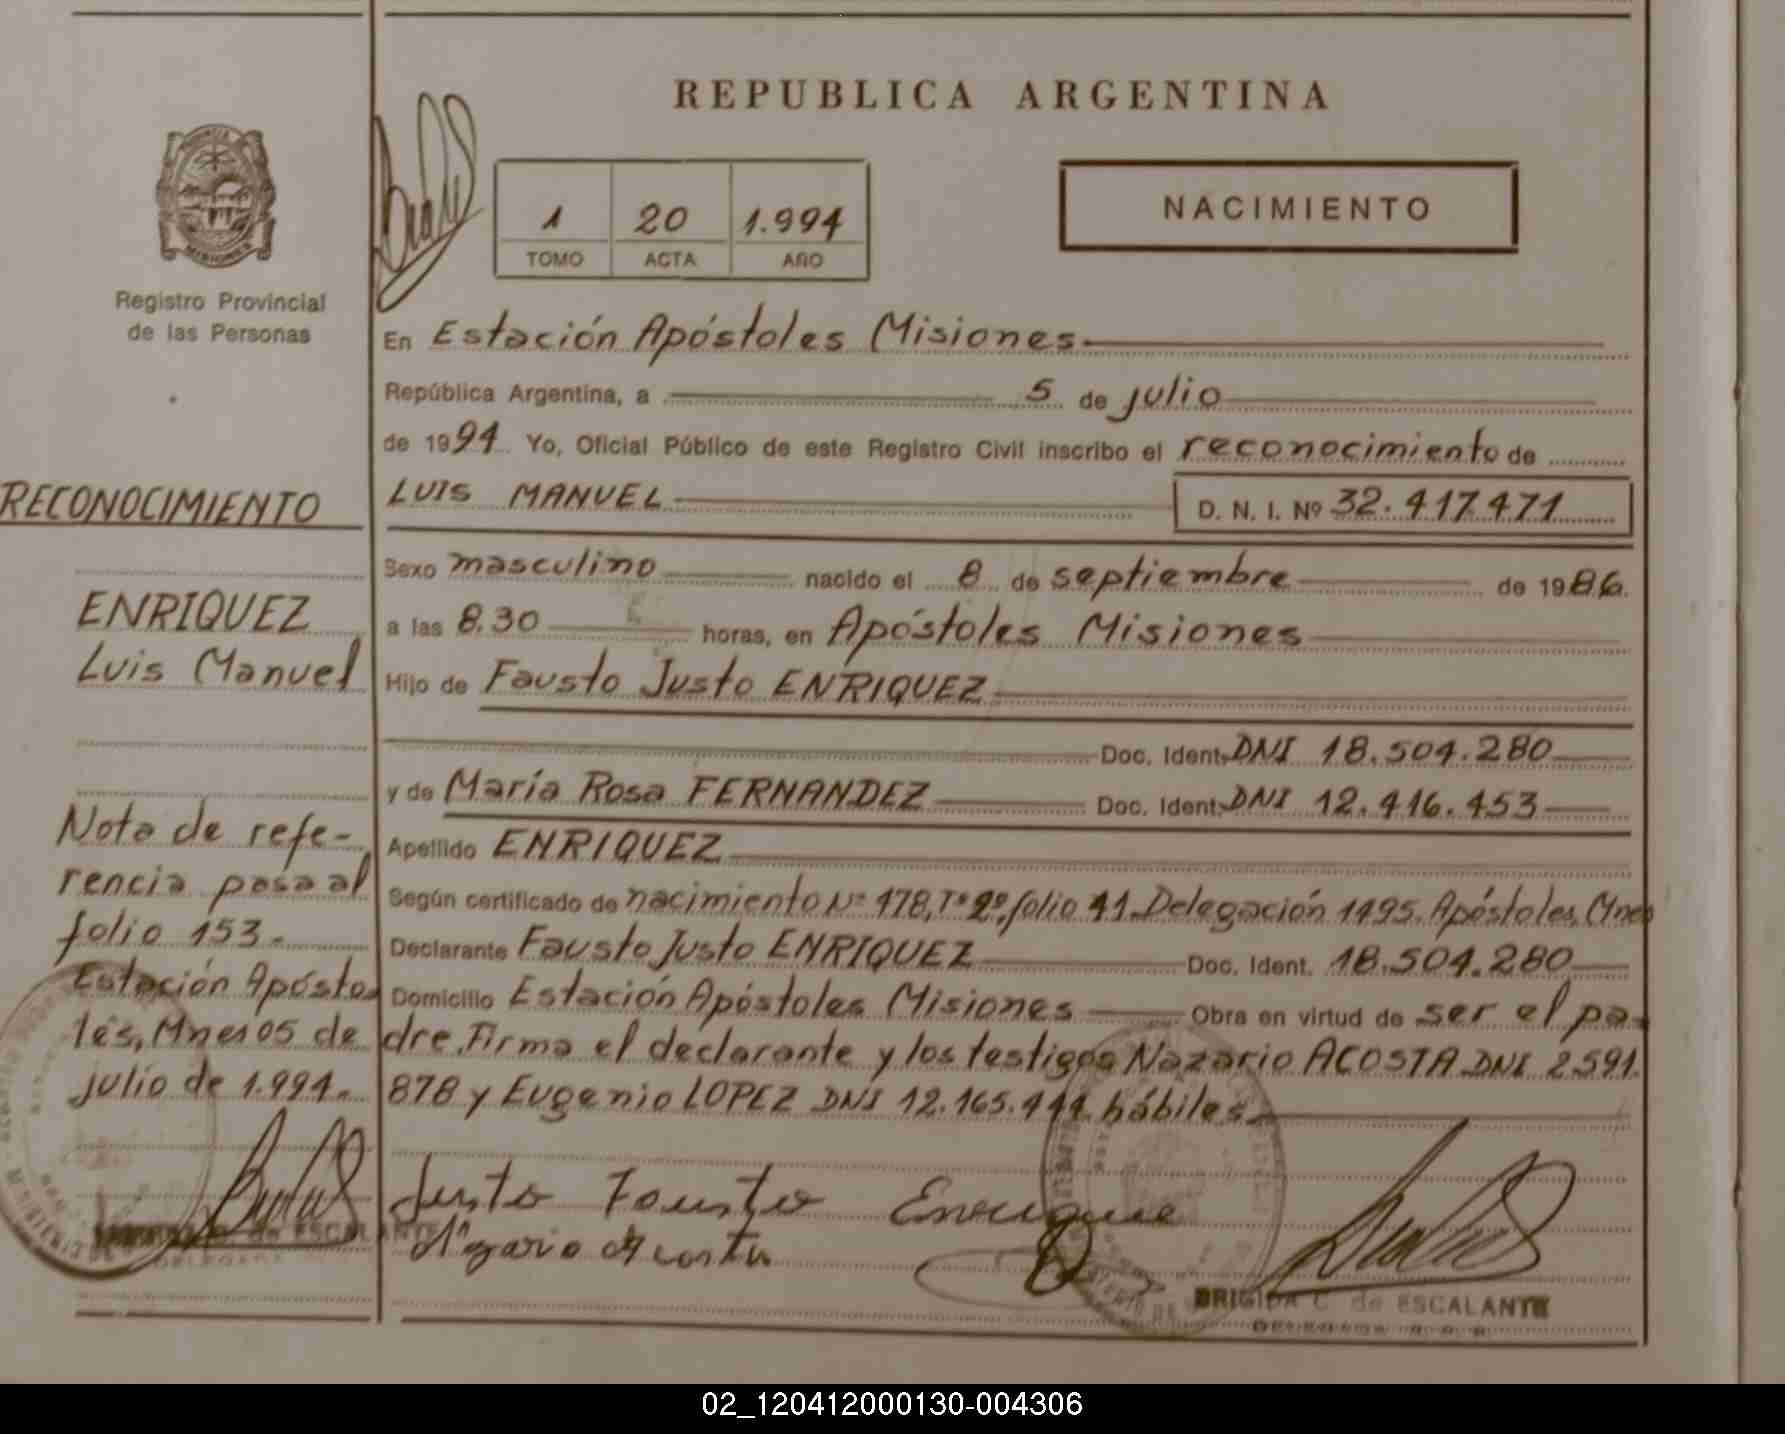 REPUBLICA ARGENTINA
PROVINCIA
MISIONES
Registro Provincial
de las Personas
1 20 1.994
TOMO ACTA AÑO
NACIMIENTO
En Estación Apóstoles Misiones
República Argentina, a 5 de julio
de 1994 Yo, Oficial Público de este Registro Civil inscribo el reconocimiento de
LUIS MANUEL D. N. I. Nº 32.417.471
Sexo masculino nacido el 8 de septiembre de 1986.
a las 8.30 horas, en Apóstoles Misiones
Hijo de Fausto Justo ENRIQUEZ
Doc. Ident. DNI 18.504.280
y de María Rosa FERNANDEZ Doc. Ident. DNI 12.416.453
Apellido ENRIQUEZ
Según certificado de nacimiento Nº 478, Tº 2º, folio 41. Delegación 1495. Apóstoles, Mnes
Declarante Fausto Justo ENRIQUEZ Doc. Ident. 18.504.280
Domicilio Estación Apóstoles Misiones Obra en virtud de ser el pa-
dre. Firma el declarante y los testigos Nazario ACOSTA DNI 2.591.
878 y Eugenio LOPEZ DNI 12.165.444 hábiles.
Justo Fausto Enrique
Nazario Acosta
BRIGIDA C. de ESCALANTE
RECONOCIMIENTO
ENRIQUEZ
Luis Manuel
Nota de refe-
rencia pasa al
folio 153.
Estación Apósto-
les, Mnes 05 de
julio de 1.994.
de ESCALANTE
DELEGADA
02_120412000130-004306